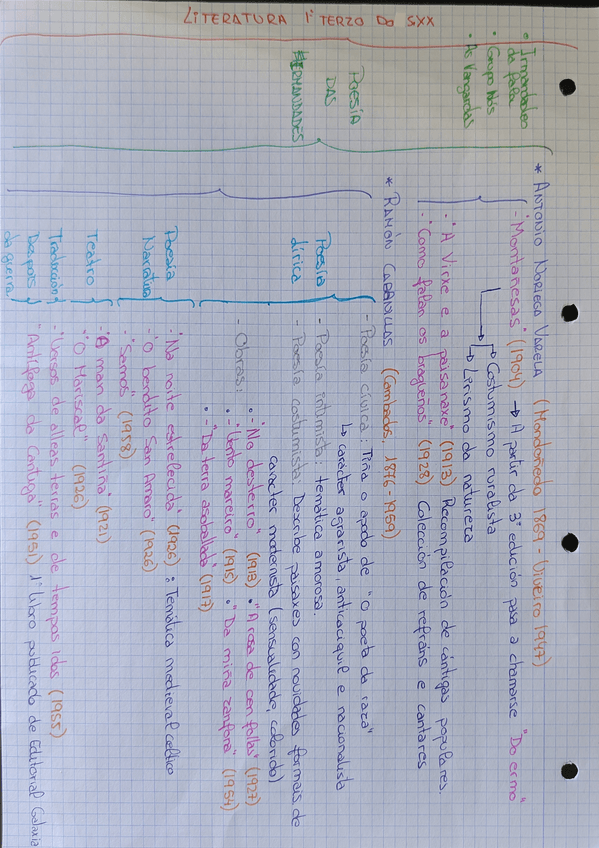 LITERATURA 1º TERZO DO SXX
• Irmandades da fala
• Grupo Nós
• As Vangardas
POESÍA DAS IRMANDADES
* ANTONIO NORIEGA VARELA (Mondoñedo 1869 - Viveiro 1947)
- "Montañesas" (1904) → A partir da 3ª edición pasa a chamarse "Do ermo"
↳ Costumismo ruralista
↳ Lirismo da natureza
- "A Virxe e a paisanaxe" (1913) Recompilación de cántigas populares.
- "Como falan os brañegos" (1928) Colección de refráns e cantares
* RAMÓN CABANILLAS (Cambados, 1876-1959)
Poesía lírica
- Poesía cívica: Tiña o apodo de "O poeta da raza"
↳ carácter agrarista, anticaciquil e nacionalista
- Poesía intimista: temática amorosa.
- Poesía costumista: Describe paisaxes con novidades formais de
carácter modernista (sensualidade, colorido)
- Obras:
• - "No desterro" (1913) • "A rosa de cen follas" (1927)
• - "Vento mareiro" (1915) • "Da miña zanfona" (1954)
• - "Da terra asoballada" (1917)
Poesía Narrativa
- "Na noite estrelecida" (1926): Temática medieval céltico
- "O bendito San Amaro" (1926)
- "Samos" (1958)
Teatro
- "A man da Santiña" (1921)
- "O Mariscal" (1926)
Tradución
- "Versos de alleas terras e de tempos idos" (1955)
Despois da guerra
- "Antífona da Cantiga" (1951) 1º libro publicado de Editorial Galaxia